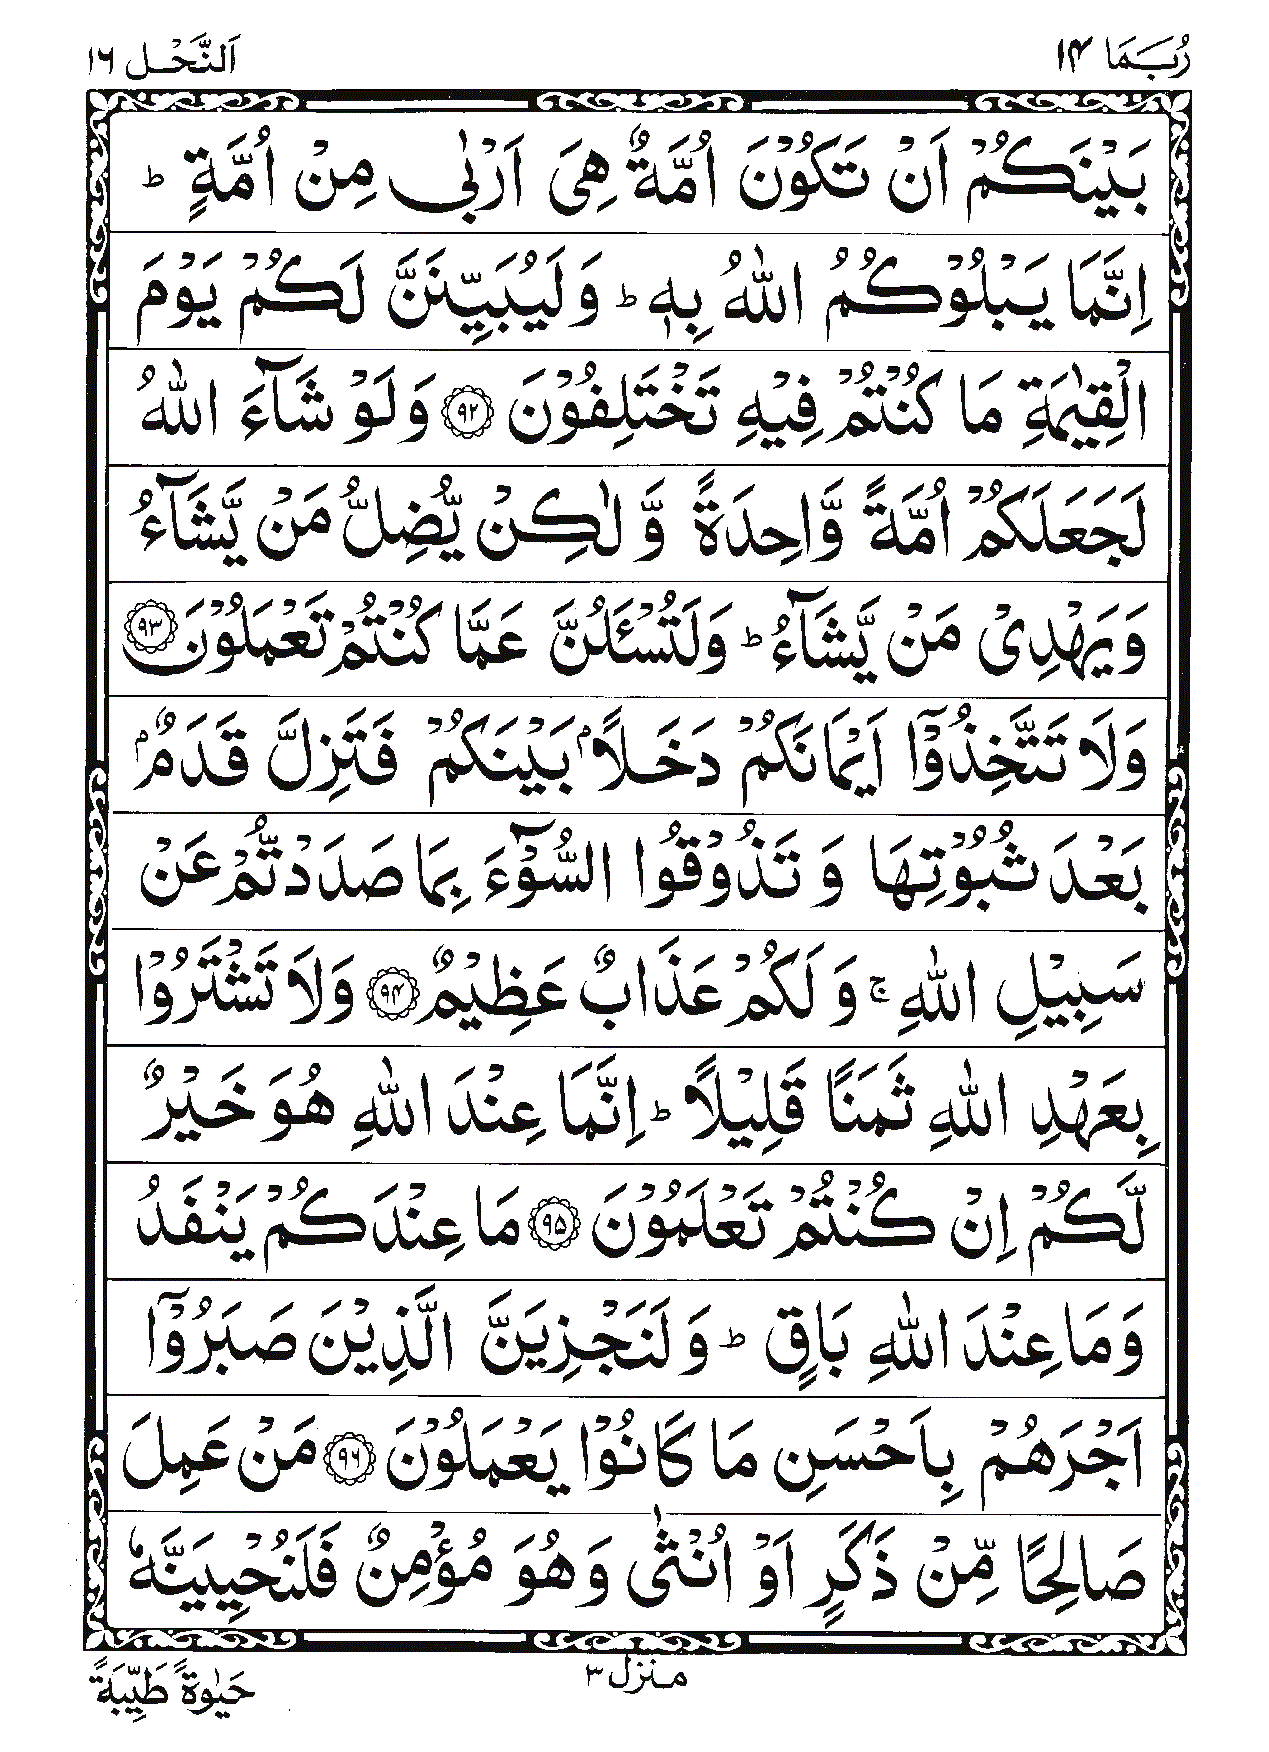 رُبَمَا ۱۴ اَلنَّحۡل ۱۶
بَيۡنَكُمۡ اَنۡ تَكُوۡنَ اُمَّةٌ هِىَ اَرۡبٰى مِنۡ اُمَّةٍ ؕ
اِنَّمَا يَبۡلُوۡكُمُ اللّٰهُ بِهٖ ؕ وَلَيُبَيِّنَنَّ لَكُمۡ يَوۡمَ
الۡقِيٰمَةِ مَا كُنۡتُمۡ فِيۡهِ تَخۡتَلِفُوۡنَ ۝۹۲ وَلَوۡ شَآءَ اللّٰهُ
لَجَعَلَكُمۡ اُمَّةً وَّاحِدَةً وَّ لٰكِنۡ يُّضِلُّ مَنۡ يَّشَآءُ
وَيَهۡدِىۡ مَنۡ يَّشَآءُ ؕ وَلَتُسۡـَٔلُنَّ عَمَّا كُنۡتُمۡ تَعۡمَلُوۡنَ ۝۹۳
وَلَا تَتَّخِذُوۡۤا اَيۡمَانَكُمۡ دَخَلًاۢ بَيۡنَكُمۡ فَتَزِلَّ قَدَمٌۢ
بَعۡدَ ثُبُوۡتِهَا وَ تَذُوۡقُوا السُّوۡٓءَ بِمَا صَدَدْتُّمۡ عَنۡ
سَبِيۡلِ اللّٰهِ ۚ وَ لَكُمۡ عَذَابٌ عَظِيۡمٌ ۝۹۴ وَلَا تَشۡتَرُوۡا
بِعَهۡدِ اللّٰهِ ثَمَنًا قَلِيۡلًا ؕ اِنَّمَا عِنۡدَ اللّٰهِ هُوَ خَيۡرٌ
لَّكُمۡ اِنۡ كُنۡتُمۡ تَعۡلَمُوۡنَ ۝۹۵ مَا عِنۡدَكُمۡ يَنۡفَدُ
وَمَا عِنۡدَ اللّٰهِ بَاقٍ ؕ وَ لَنَجۡزِيَنَّ الَّذِيۡنَ صَبَرُوۡۤا
اَجۡرَهُمۡ بِاَحۡسَنِ مَا كَانُوۡا يَعۡمَلُوۡنَ ۝۹۶ مَنۡ عَمِلَ
صَالِحًا مِّنۡ ذَكَرٍ اَوۡ اُنۡثٰى وَهُوَ مُؤۡمِنٌ فَلَنُحۡيِيَنَّهٗ
منزل ۳
حَيٰوةً طَيِّبَةً